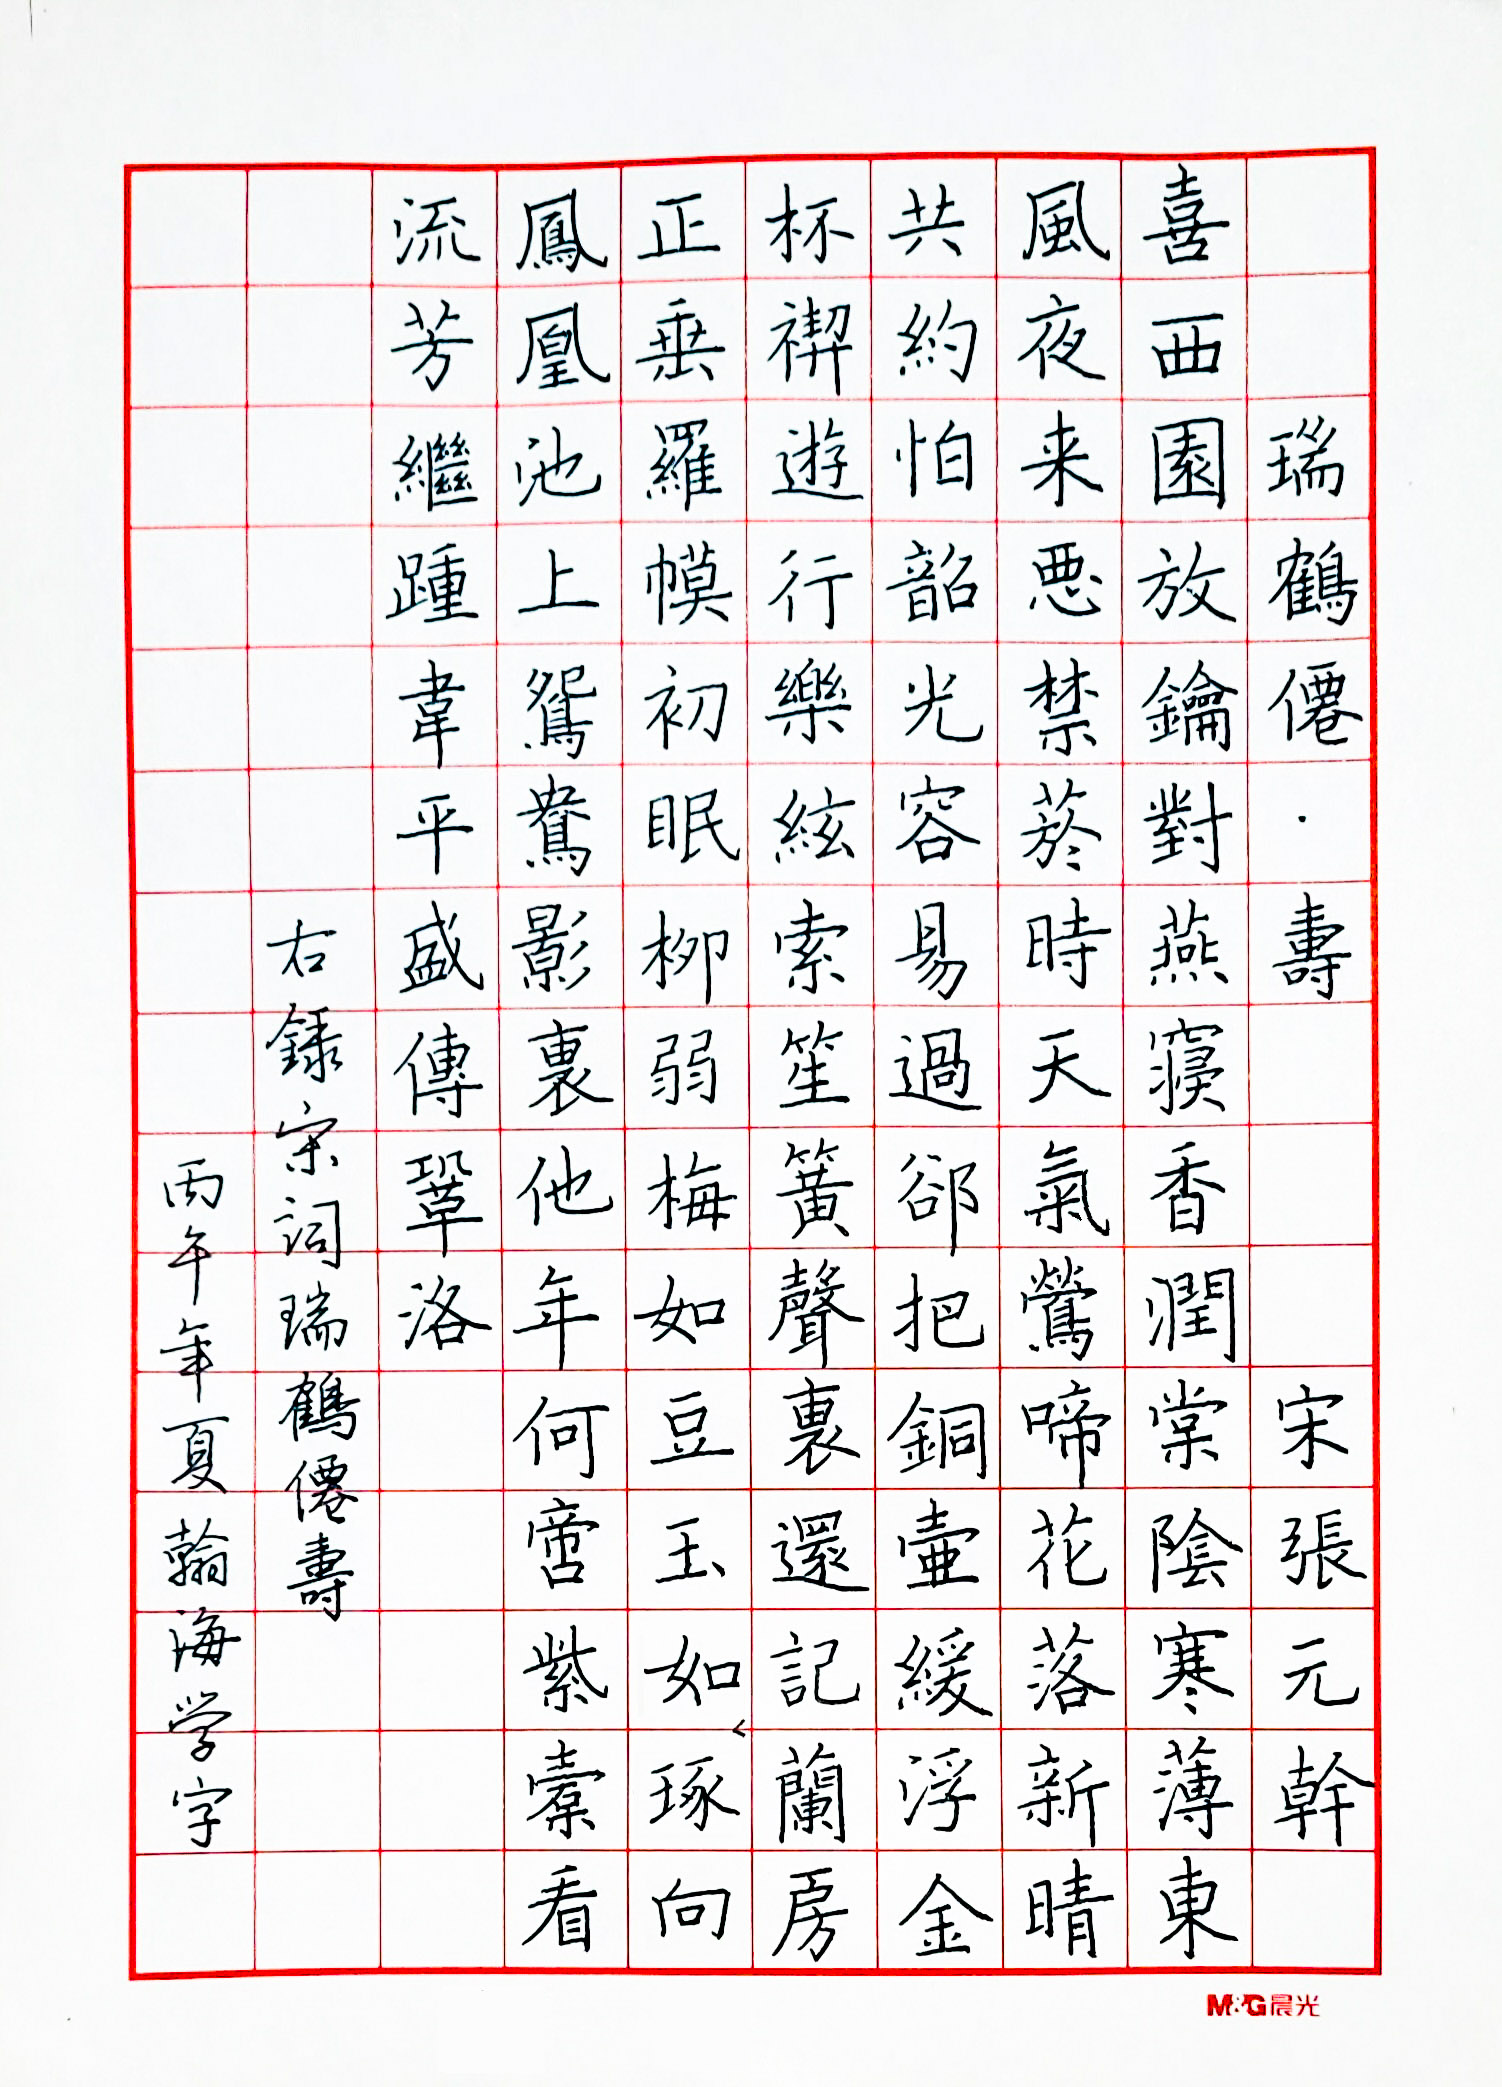 瑞鶴僊·壽 宋張元幹
喜西園放鑰對燕寢香潤棠陰寒薄東
風夜来惡禁菸時天氣鶯啼花落新晴
共約怕韶光容易過卻把銅壺緩浮金
杯禊遊行樂絃索笙簧聲裏還記蘭房
正垂羅幙初眠柳弱梅如豆玉如琢向
鳳凰池上鴛鴦影裏他年何啻紫橐看
流芳繼踵韋平盛傳鞏洛
右録宋詞瑞鶴僊壽
丙午年夏翰海学字
M&G晨光